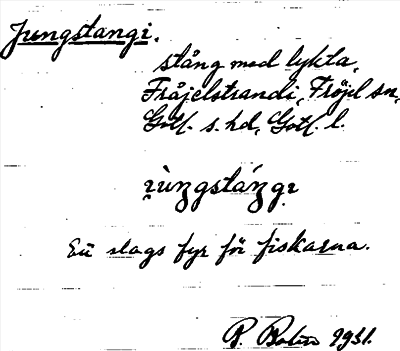 Jungstangi.
stång med lykta,
Fråjelstrandi, Fröjel sn,
Gotl. s. hd, Gotl. l.
ı̯ùŋgstáŋgı
En slags fyr för fiskarna.
P. 1931.